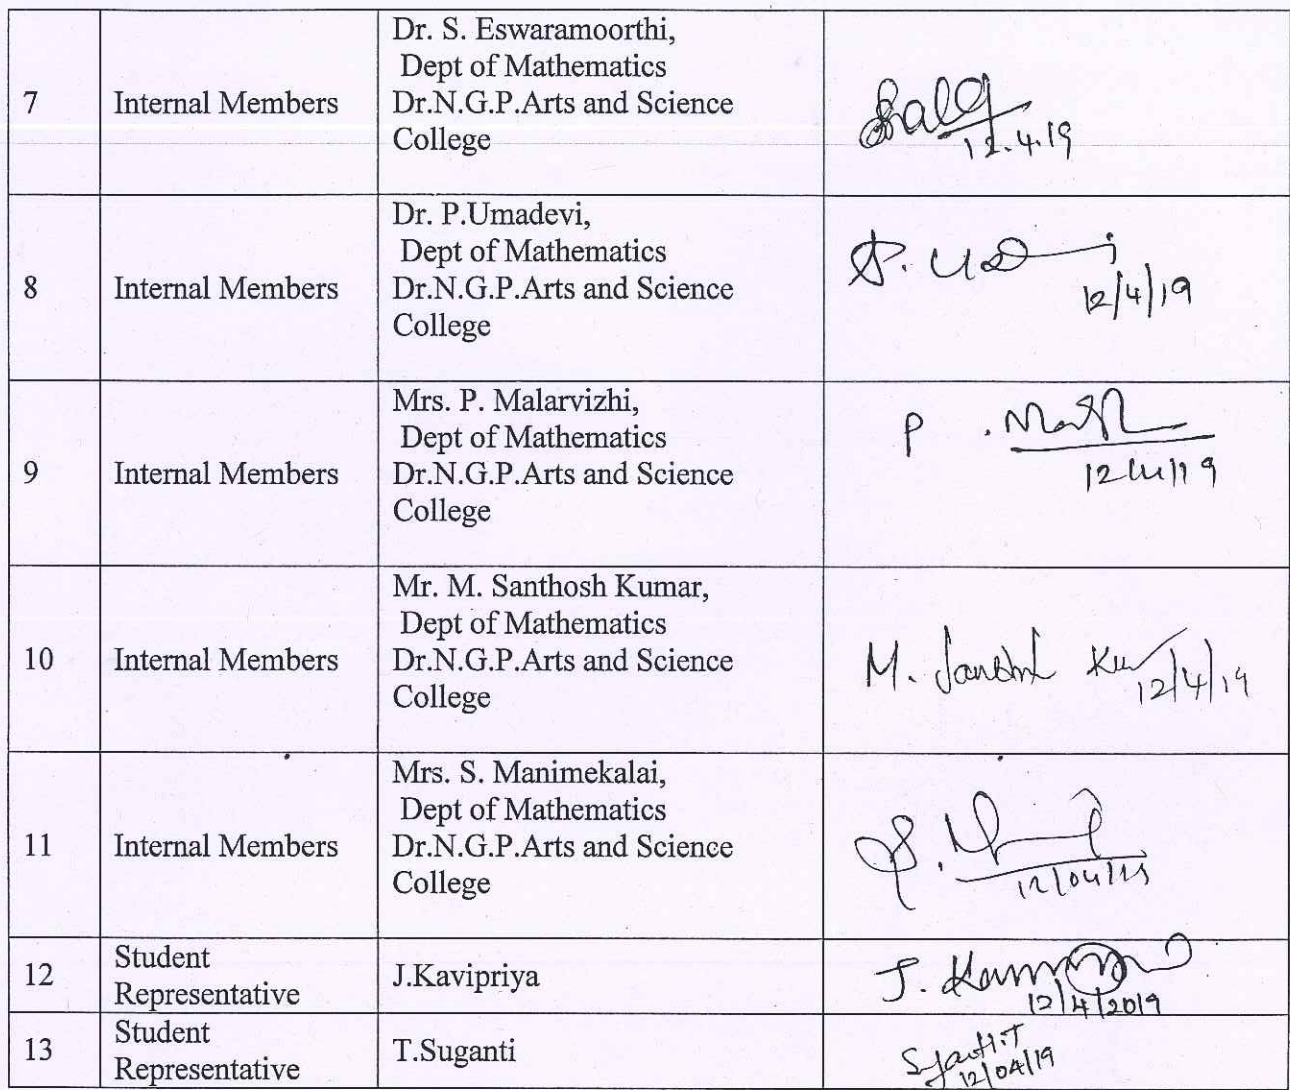 7
Internal Members
Dr. S. Eswaramoorthi,
Dept of Mathematics
Dr.N.G.P.Arts and Science
College
12.4.19
8
Internal Members
Dr. P.Umadevi,
Dept of Mathematics
Dr.N.G.P.Arts and Science
College
12/4/19
9
Internal Members
Mrs. P. Malarvizhi,
Dept of Mathematics
Dr.N.G.P.Arts and Science
College
P.
12/4/19
10
Internal Members
Mr. M. Santhosh Kumar,
Dept of Mathematics
Dr.N.G.P.Arts and Science
College
M.
12/4/19
11
Internal Members
Mrs. S. Manimekalai,
Dept of Mathematics
Dr.N.G.P.Arts and Science
College
12/04/19
12
Student
Representative
J.Kavipriya
J.
12/4/2019
13
Student
Representative
T.Suganti
12/04/19